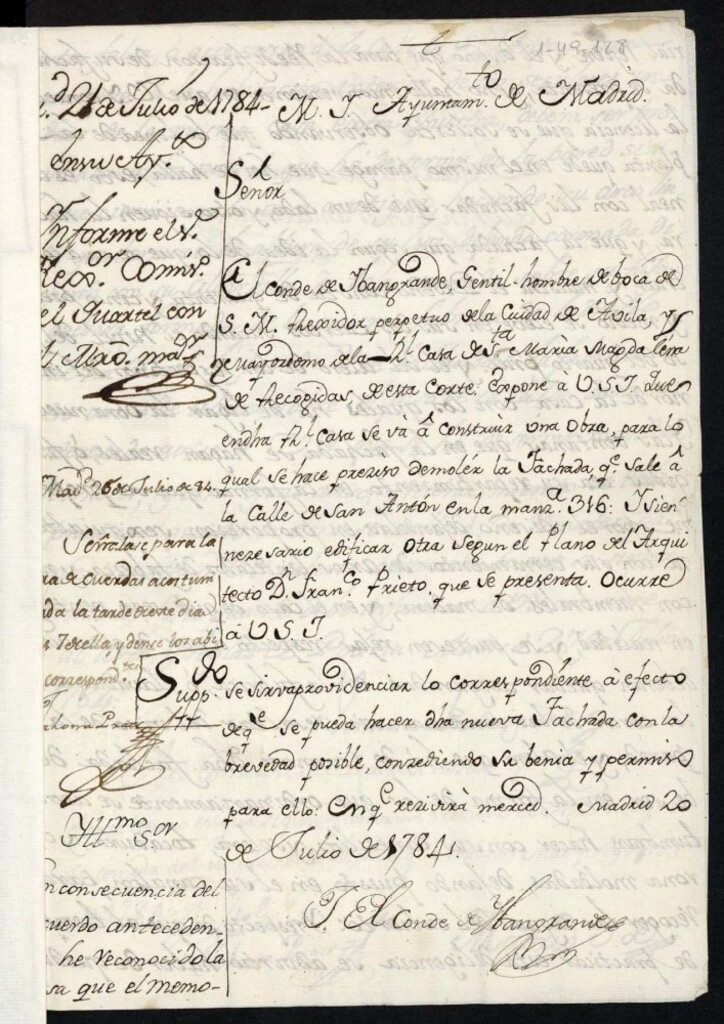 1-49-128
M. I. Ayuntam.to de Madrid.
Señor
El Conde de Ybangrande, Gentil-hombre de boca de
S. M. Rexidor perpetuo de la Ciudad de Avila, y
Mayordomo de la Rl. Casa de Sta. Maria Magdalena
de Recogidas, de esta Corte. Expone à V.S.I. que
en dha Rl. Casa se và à construir una Obra, para lo
qual se hace preziso demolér la Fachada qe. sale à
la Calle de San Antón en la manz.a 316: Y sien
nezesario edificar otra segun el Plano del Arqui
tecto Dn. Fran.co Prieto, que se presenta. Ocurre
à V.S.I.
Suppdo. se sirva providenciar lo correspondiente à efecto
de qe. se pueda hacer dha nueva Fachada con la
brevedad posible, conzediendo su benia y permiso
para ello: En qe. rezivirà merced. Madrid 20
de Julio de 1784.
El Conde de Ybangrande
d 21 de Julio de 1784-
en su Ay.to
Informe el Sr.
Rexor. Comis.o
el Quartel con
Mro. maor.
Madd. 26 de Julio de 84.
Señalase para la
ra de cuerdas acostum
da la tarde de este dia
correspond.tes
Yllmo Sor
n consecuencia del
cuerdo anteceden-
he reconocido la
sa que el memo-